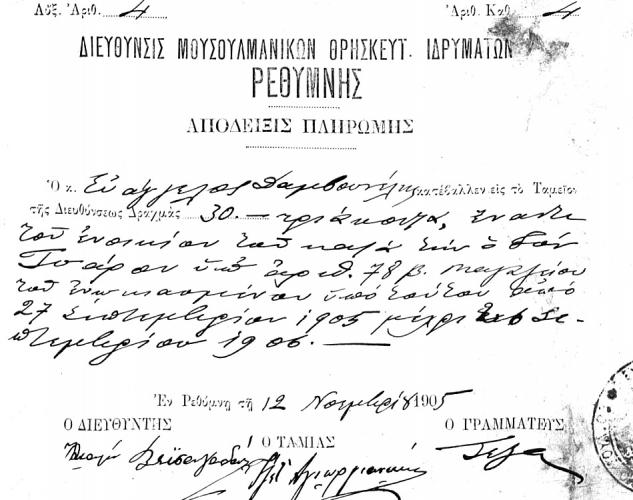 Αὔξ. Ἀριθ. 4 Ἀριθ. Καθ. 4
ΔΙΕΥΘΥΝΣΙΣ ΜΟΥΣΟΥΛΜΑΝΙΚΩΝ ΘΡΗΣΚΕΥΤ. ΙΔΡΥΜΑΤΩΝ
ΡΕΘΥΜΝΗΣ
ΑΠΟΔΕΙΞΙΣ ΠΛΗΡΩΜΗΣ
Ὁ κ. Εὐάγγελος κατέβαλλεν εἰς τὸ Ταμεῖον
τῆς Διευθύνσεως Δραχμὰς 30.— τριάκοντα, ἔναντι
τοῦ ἐνοικίου τοῦ κατὰ τὴν ὁδὸν
ὑπ' ἀριθ. 78 β. μαγαζείου
τοῦ ἐνοικιασμένου ὑπὸ τούτου ἀπὸ
27 Σεπτεμβρίου 1905 μέχρι 26 Σε-
πτεμβρίου 1906.—
Ἐν Ρεθύμνῃ τῇ 12 Νοεμβρίου 1905
Ο ΔΙΕΥΘΥΝΤΗΣ Ο ΤΑΜΙΑΣ Ο ΓΡΑΜΜΑΤΕΥΣ